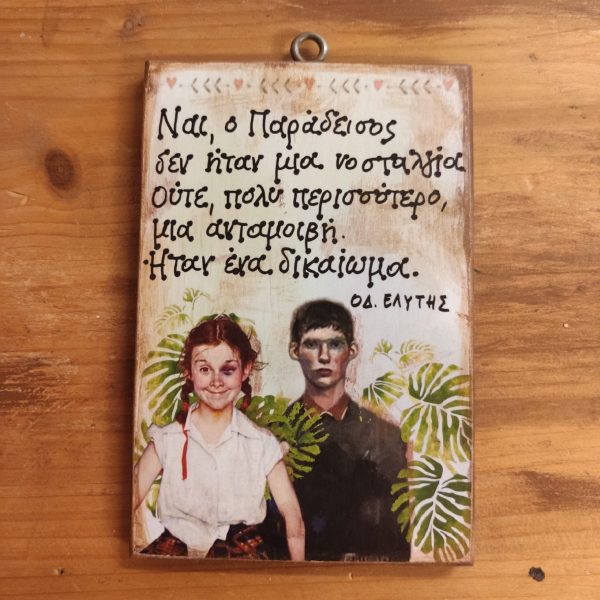 Ναι, ο Παράδεισος
δεν ήταν μια νοσταλγία
Ούτε, πολύ περισσότερο,
μια ανταμοιβή.
Ήταν ένα δικαίωμα.
ΟΔ. ΕΛΥΤΗΣ